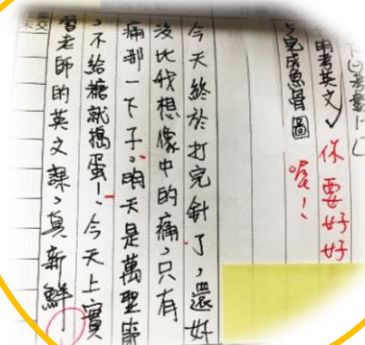 明考英文✓
完成魚骨圖
你要好好
喔!
今天終於打完針了,還好
沒比我想像中的痛,只有
痛那一下子。明天是萬聖節
,不給糖就搗蛋!今天上實
習老師的英文課,真新鮮!